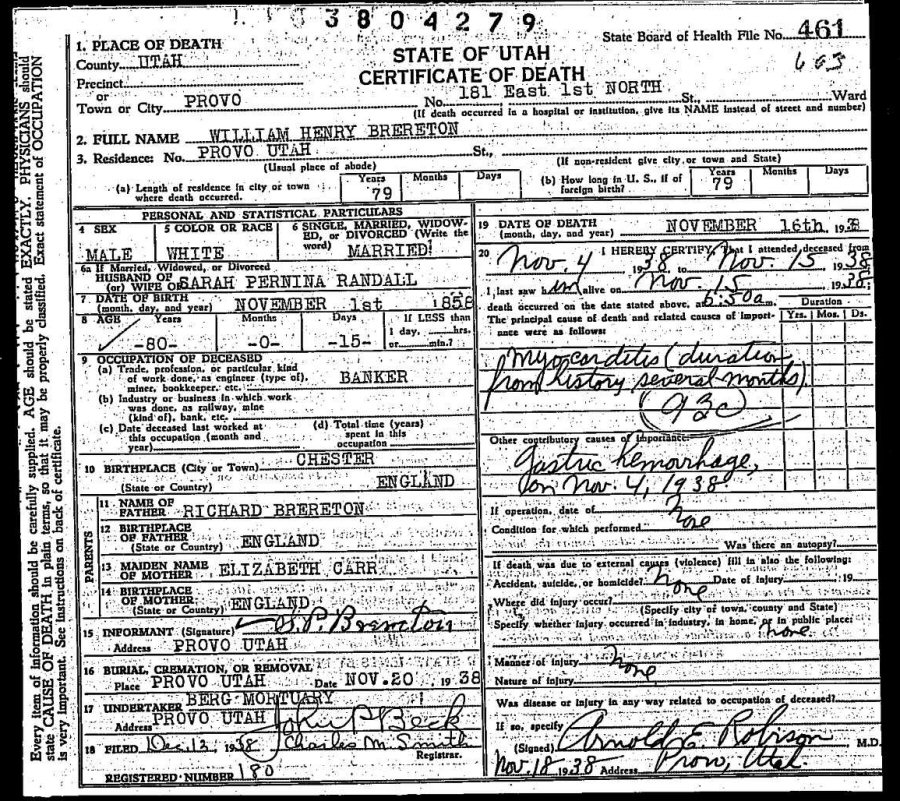 3804279
State Board of Health File No. 461
603
STATE OF UTAH
CERTIFICATE OF DEATH
1. PLACE OF DEATH
County UTAH
Precinct
or
Town or City PROVO
No. 181 East 1st NORTH St., Ward
(If death occurred in a hospital or institution, give its NAME instead of street and number)
2. FULL NAME WILLIAM HENRY BRERETON
3. Residence: No. PROVO UTAH St.,
(Usual place of abode)
(If non-resident give city or town and State)
(a) Length of residence in city or town where death occurred.
Years 79 Months Days
(b) How long in U. S., if of foreign birth?
Years 79 Months Days
PERSONAL AND STATISTICAL PARTICULARS
4 SEX
MALE
5 COLOR OR RACE
WHITE
6 SINGLE, MARRIED, WIDOWED, or DIVORCED (Write the word)
MARRIED
6a If Married, Widowed, or Divorced
HUSBAND OF
(or) WIFE OF SARAH PERNINA RANDALL
7 DATE OF BIRTH
(month, day, and year) NOVEMBER 1st 1858
8 AGE Years Months Days If LESS than
1 day, hrs.
or min.?
-80- -0- -15-
9 OCCUPATION OF DECEASED
(a) Trade, profession, or particular kind
of work done, as engineer (type of),
miner, bookkeeper, etc. BANKER
(b) Industry or business in which work
was done, as railway, mine
(kind of), bank, etc.
(c) Date deceased last worked at
this occupation (month and
year)
(d) Total time (years)
spent in this
occupation
10 BIRTHPLACE (City or Town) CHESTER
(State or Country) ENGLAND
PARENTS
11 NAME OF
FATHER RICHARD BRERETON
12 BIRTHPLACE
OF FATHER
(State or Country) ENGLAND
13 MAIDEN NAME
OF MOTHER ELIZABETH CARR
14 BIRTHPLACE
OF MOTHER
(State or Country) ENGLAND
15 INFORMANT (Signature) Brereton
Address PROVO UTAH
16 BURIAL, CREMATION, OR REMOVAL
Place PROVO UTAH Date NOV. 20 1938
17 UNDERTAKER BERG MORTUARY
Address PROVO UTAH
John P Beck
18 FILED Dec. 12, 1938 Charles M. Smith
Registrar.
REGISTERED NUMBER 180
19 DATE OF DEATH
(month, day, and year) NOVEMBER 16th 1938
20 I HEREBY CERTIFY, That I attended deceased from
Nov. 4 1938 to Nov. 15 1938
I last saw him alive on Nov. 15 1938;
death occurred on the date stated above, at 6:30 a.m.
Duration
The principal cause of death and related causes of importance were as follows:
Yrs. Mos. Ds.
Myocarditis (duration
from history several months)
(93c)
Other contributory causes of importance:
Gastric hemorrhage,
on Nov. 4, 1938
If operation, date of
Condition for which performed None
Was there an autopsy?
If death was due to external causes (violence) fill in also the following:
Accident, suicide, or homicide? None Date of Injury 19
Where did injury occur?
(Specify city of town, county and State)
Specify whether injury occurred in industry, in home, or in public place:
None
Manner of injury None
Nature of injury
Was disease or injury in any way related to occupation of deceased?
If so, specify
(Signed) Arnold E. Robison M.D.
Nov. 18 1938 Address Provo, Utah.
Every item of information should be carefully supplied. AGE should be stated EXACTLY. PHYSICIANS should
state CAUSE OF DEATH in plain terms, so that it may be properly classified. Exact statement of OCCUPATION
is very important. See instructions on back of certificate.